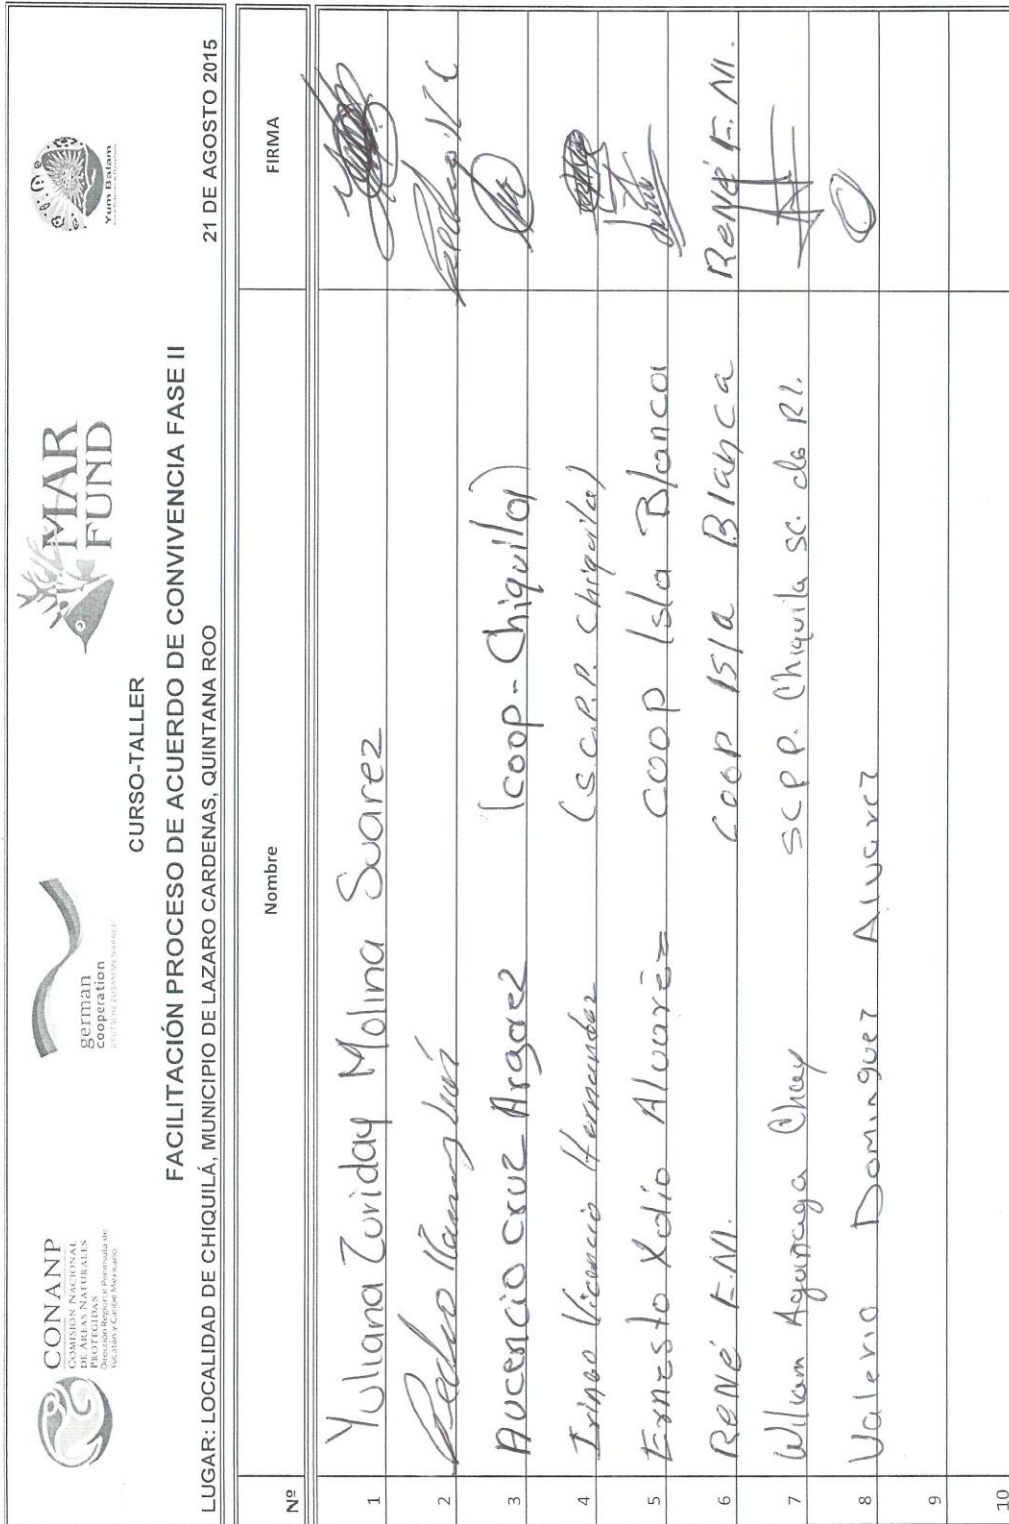 CONANP
COMISIÓN NACIONAL
DE ÁREAS NATURALES
PROTEGIDAS
Dirección Regional Península de
Yucatán y Caribe Mexicano
german
cooperation
DEUTSCHE ZUSAMMENARBEIT
MAR
FUND
Yum Balam
CURSO-TALLER
FACILITACIÓN PROCESO DE ACUERDO DE CONVIVENCIA FASE II
LUGAR: LOCALIDAD DE CHIQUILÁ, MUNICIPIO DE LAZARO CARDENAS, QUINTANA ROO 21 DE AGOSTO 2015
Nº Nombre FIRMA
1 Yuliana Zuriday Molina Suarez
2 Pedro
3 Aucencio cruz Argaez (coop-Chiquila)
4 Vicencio Hernandez (S.C.P.P. Chiquila)
5 Ernesto Xolio Alvarez COOP Isla Blanca
6 René E.M. COOP ISla Blanca René E.M.
7 Wiliam Aguinaga Chay SCPP. Chiquila sc. de Rl.
8 Valerio Dominguez Alvarez
9
10